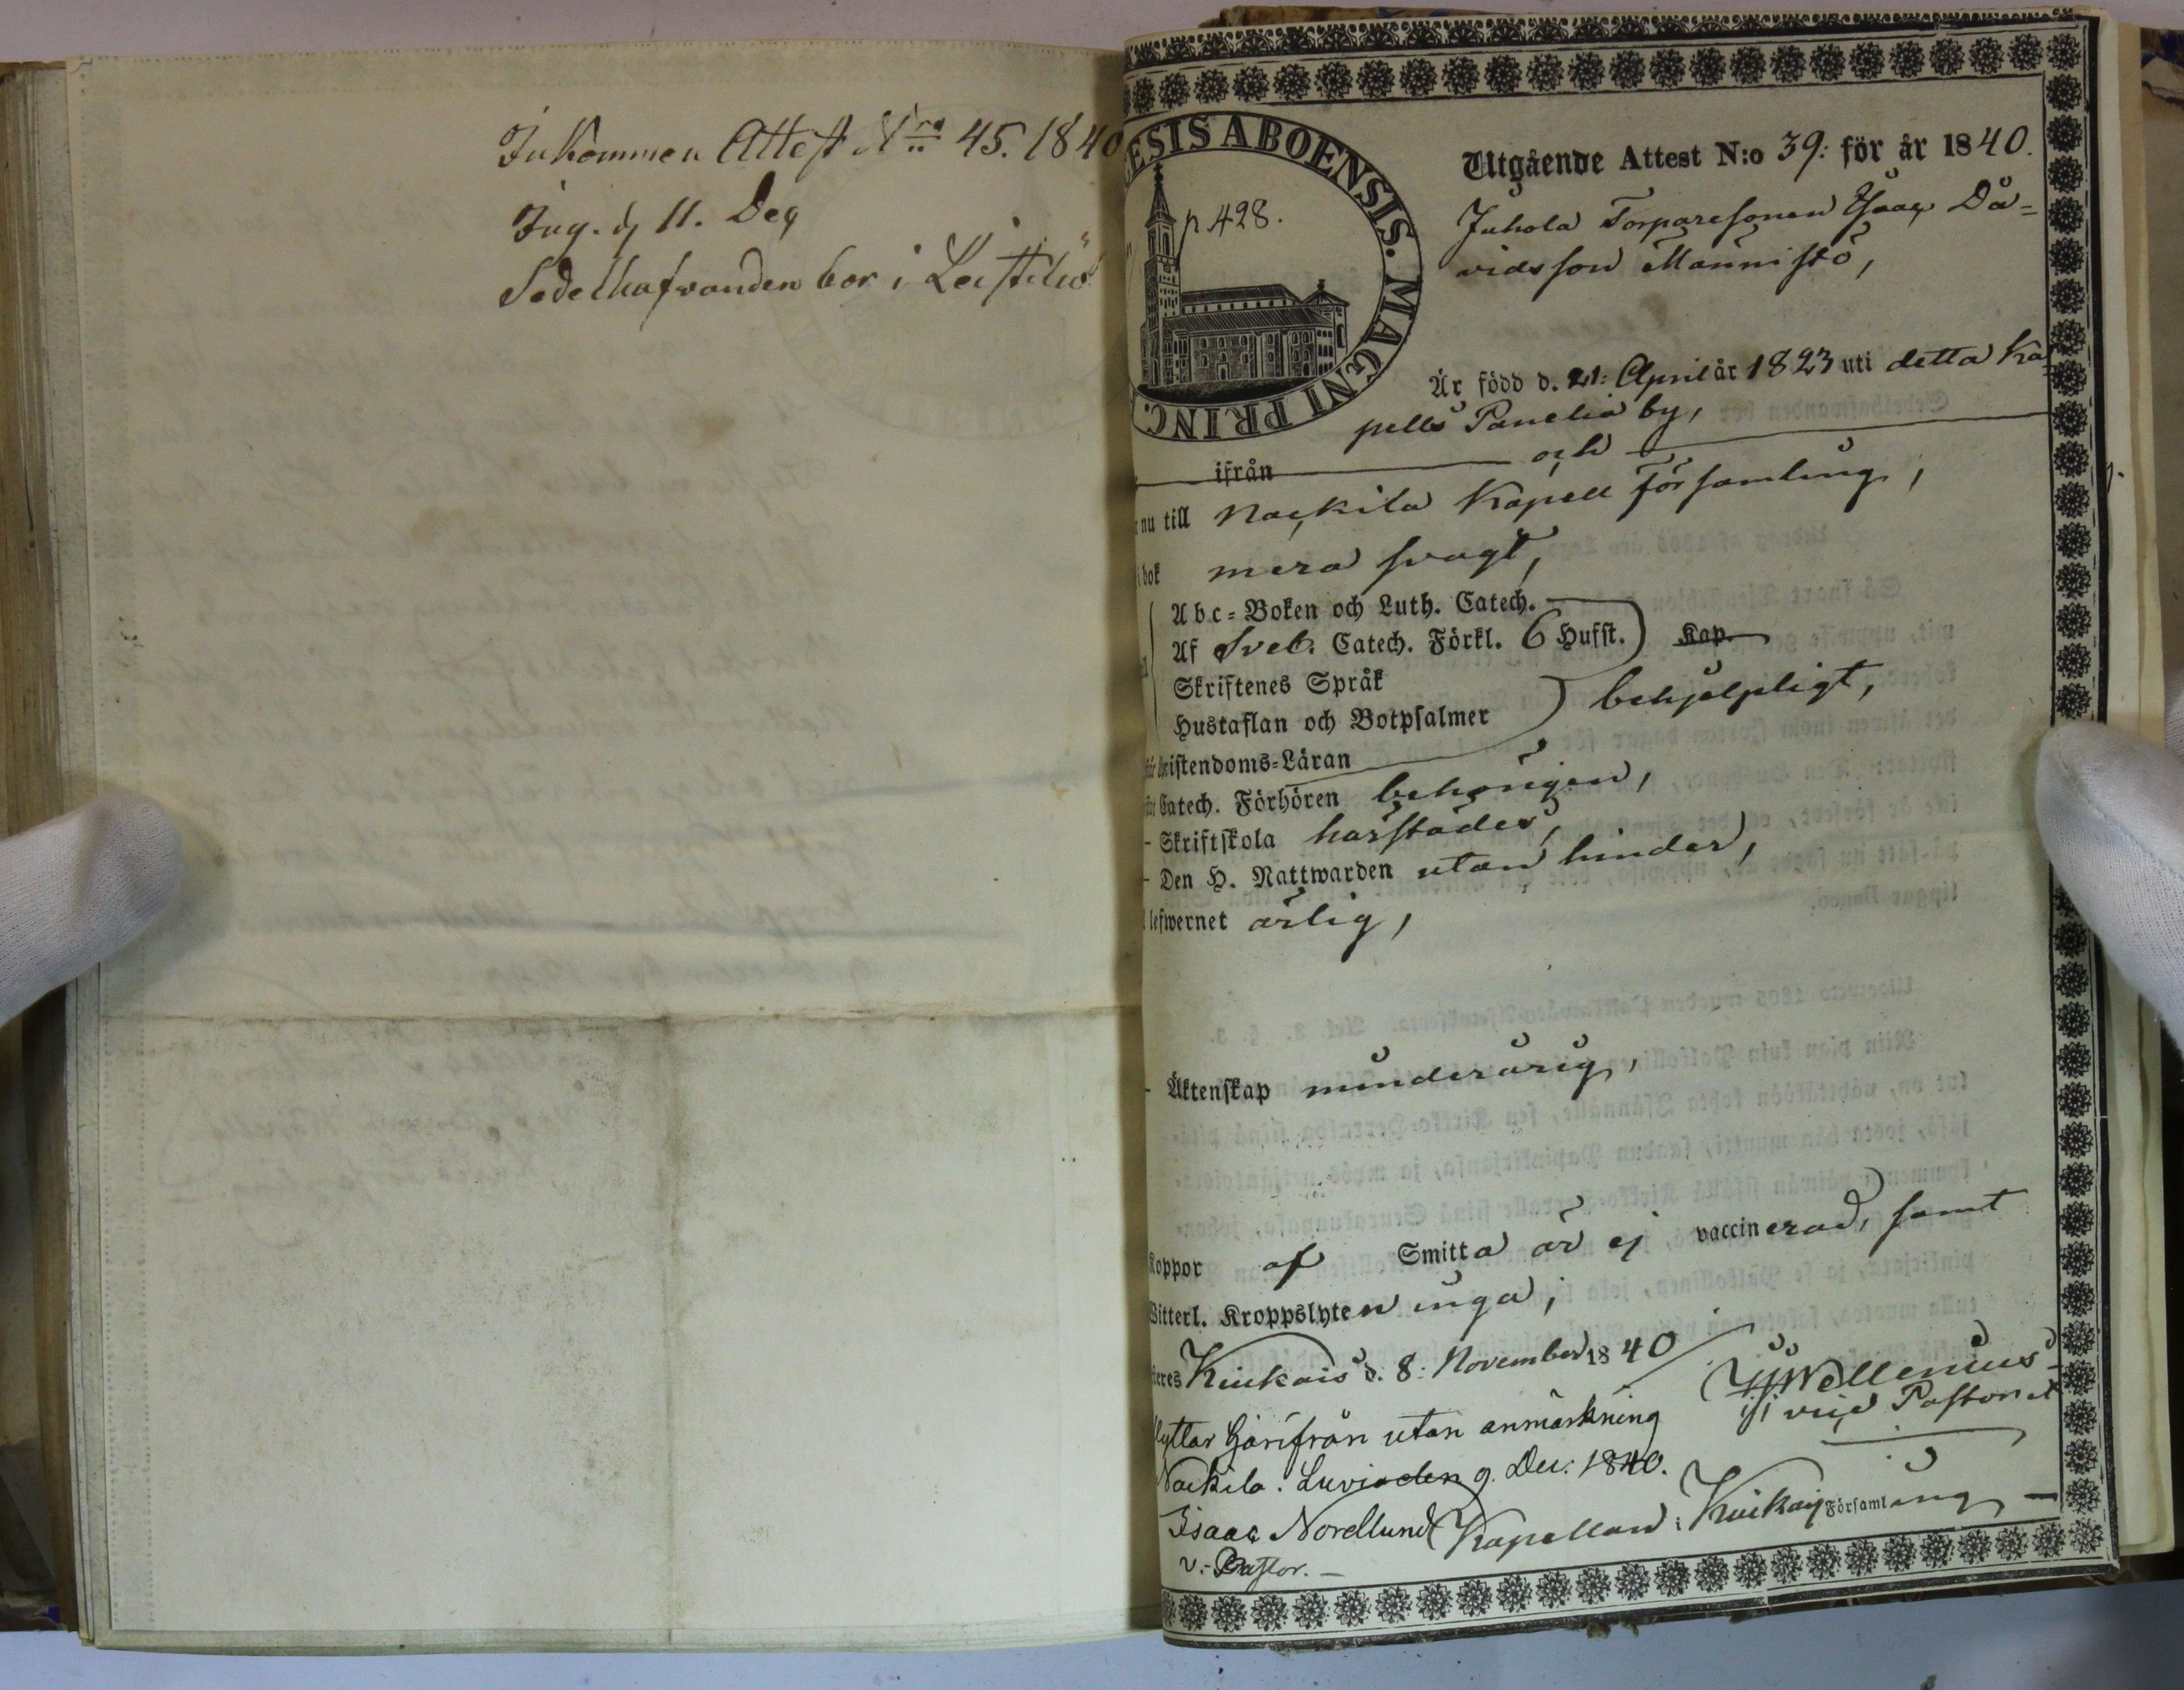 Inkommen Attest Nro 45. 1840
Ing. d 11. Dec
Sedelhafvanden bor i Leistilä
ESIS ABOENSIS. MAGNI PRINC.
p 428.
Utgående Attest N:o 39: för år 1840.
Juhola Torparesonen Isaac Da=
vidsson Männistö,
Är född d. 21: April år 1823 uti detta Ka=
pells Panelia by,
ifrån och
nu till Nackila Kapell församling,
i bok mera svagt,
Abc=Boken och Luth. Catech.
Af Sveb. Catech. Förkl. 6 Hufst. Kap.
Skriftenes Språk
Hustaflan och Botpsalmer behjelpligt,
Christendoms=Läran
Catech. Förhören behörigen,
- Skriftskola härstädes,
- Den H. Nattwarden utan hinder,
lefwernet ärlig,
- Äktenskap minderårig,
Koppor af Smitta är ej vaccinerad, samt
Witterl. Kroppslyten inga,
Kiukais d. 8: November 1840
Wellenius
vice Pastor
flyttar härifrån utan anmärkning
Nackila. Luvia den 9. Dec: 1840.
Isaac Nordlund Kapellan i Kiukais Församling
v. Pastor.